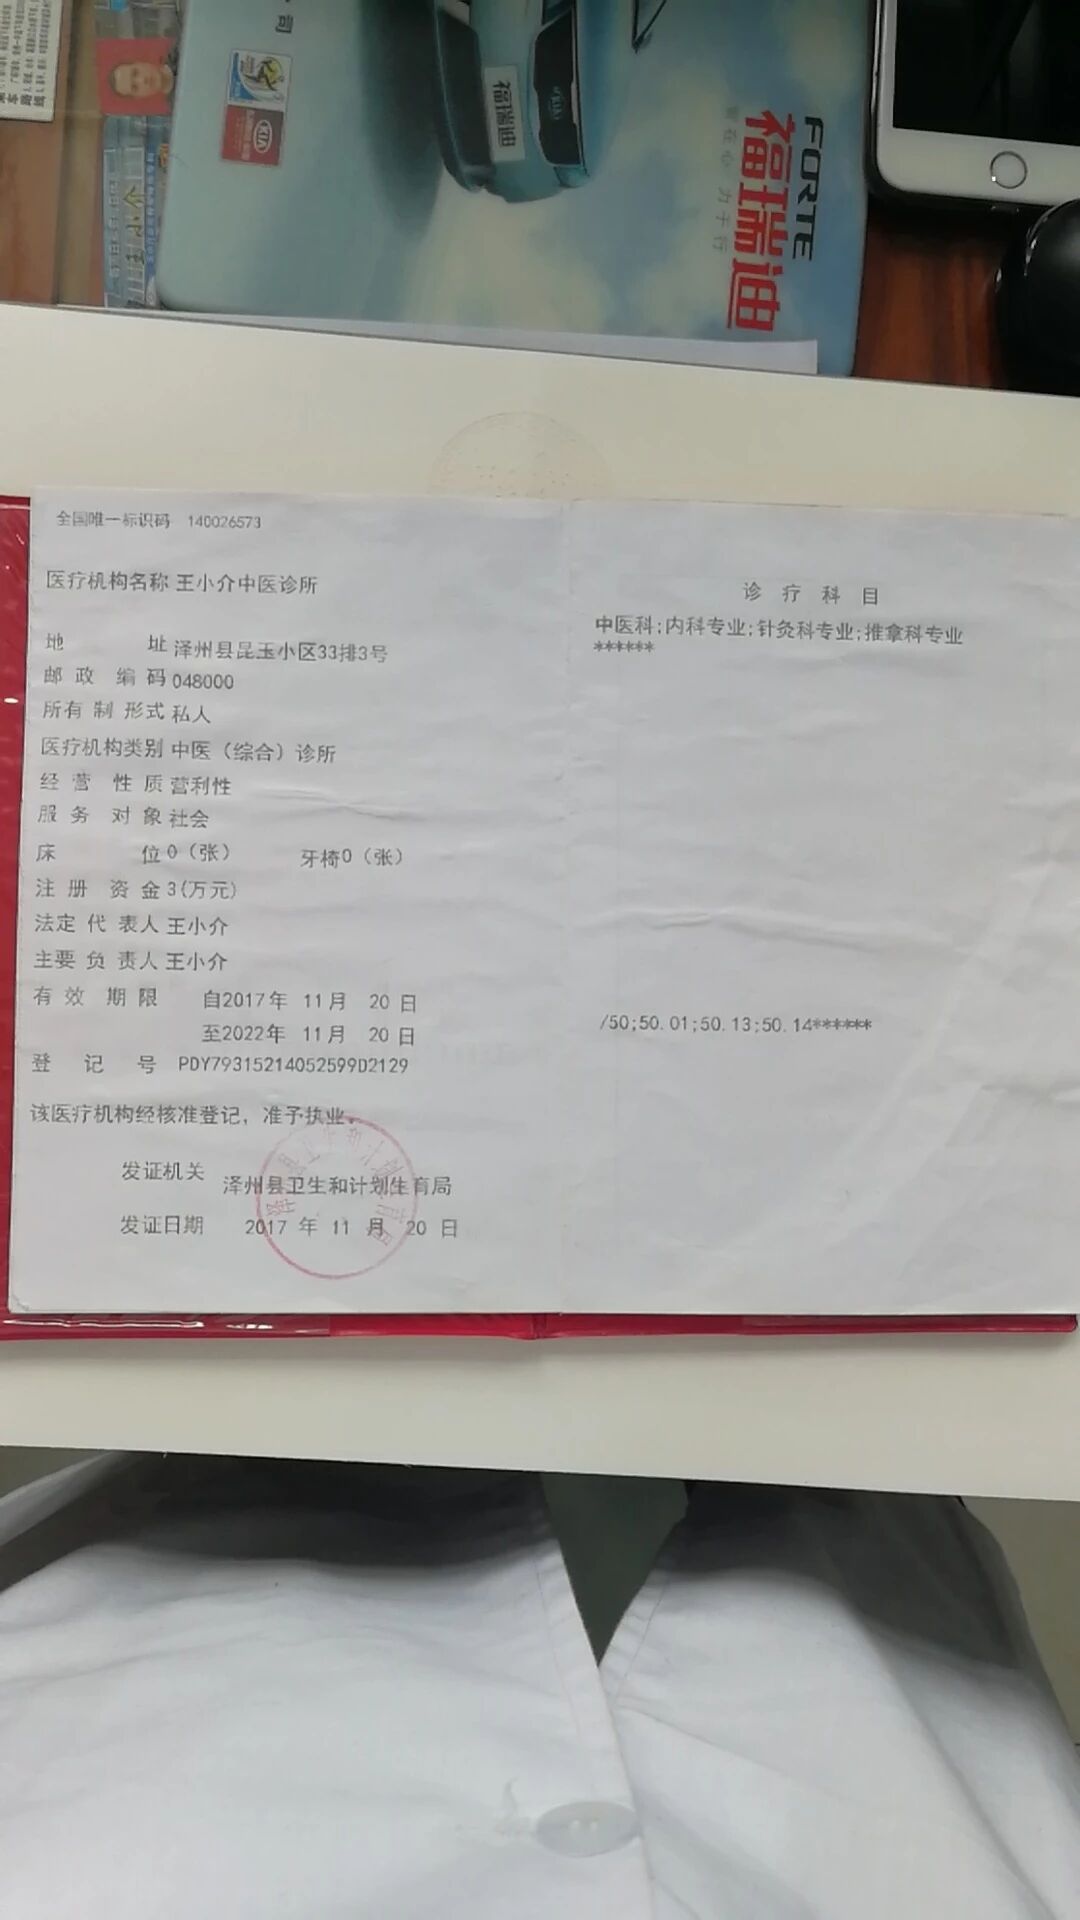 司
福瑞迪
KIA
FORTE
福瑞迪
全国唯一标识码 140026573
医疗机构名称 王小介中医诊所
地 址 泽州县昆玉小区33排3号
邮政编码 048000
所有制形式 私人
医疗机构类别 中医（综合）诊所
经营性质 营利性
服务对象 社会
床 位 0（张） 牙椅0（张）
注册资金 3(万元)
法定代表人 王小介
主要负责人 王小介
有效期限 自2017年 11月 20日
至2022年 11月 20日
登记号 PDY79315214052599D2129
该医疗机构经核准登记，准予执业。
发证机关 泽州县卫生和计划生育局
发证日期 2017年 11月 20日
诊疗科目
中医科;内科专业;针灸科专业;推拿科专业
******
/50;50.01;50.13;50.14******